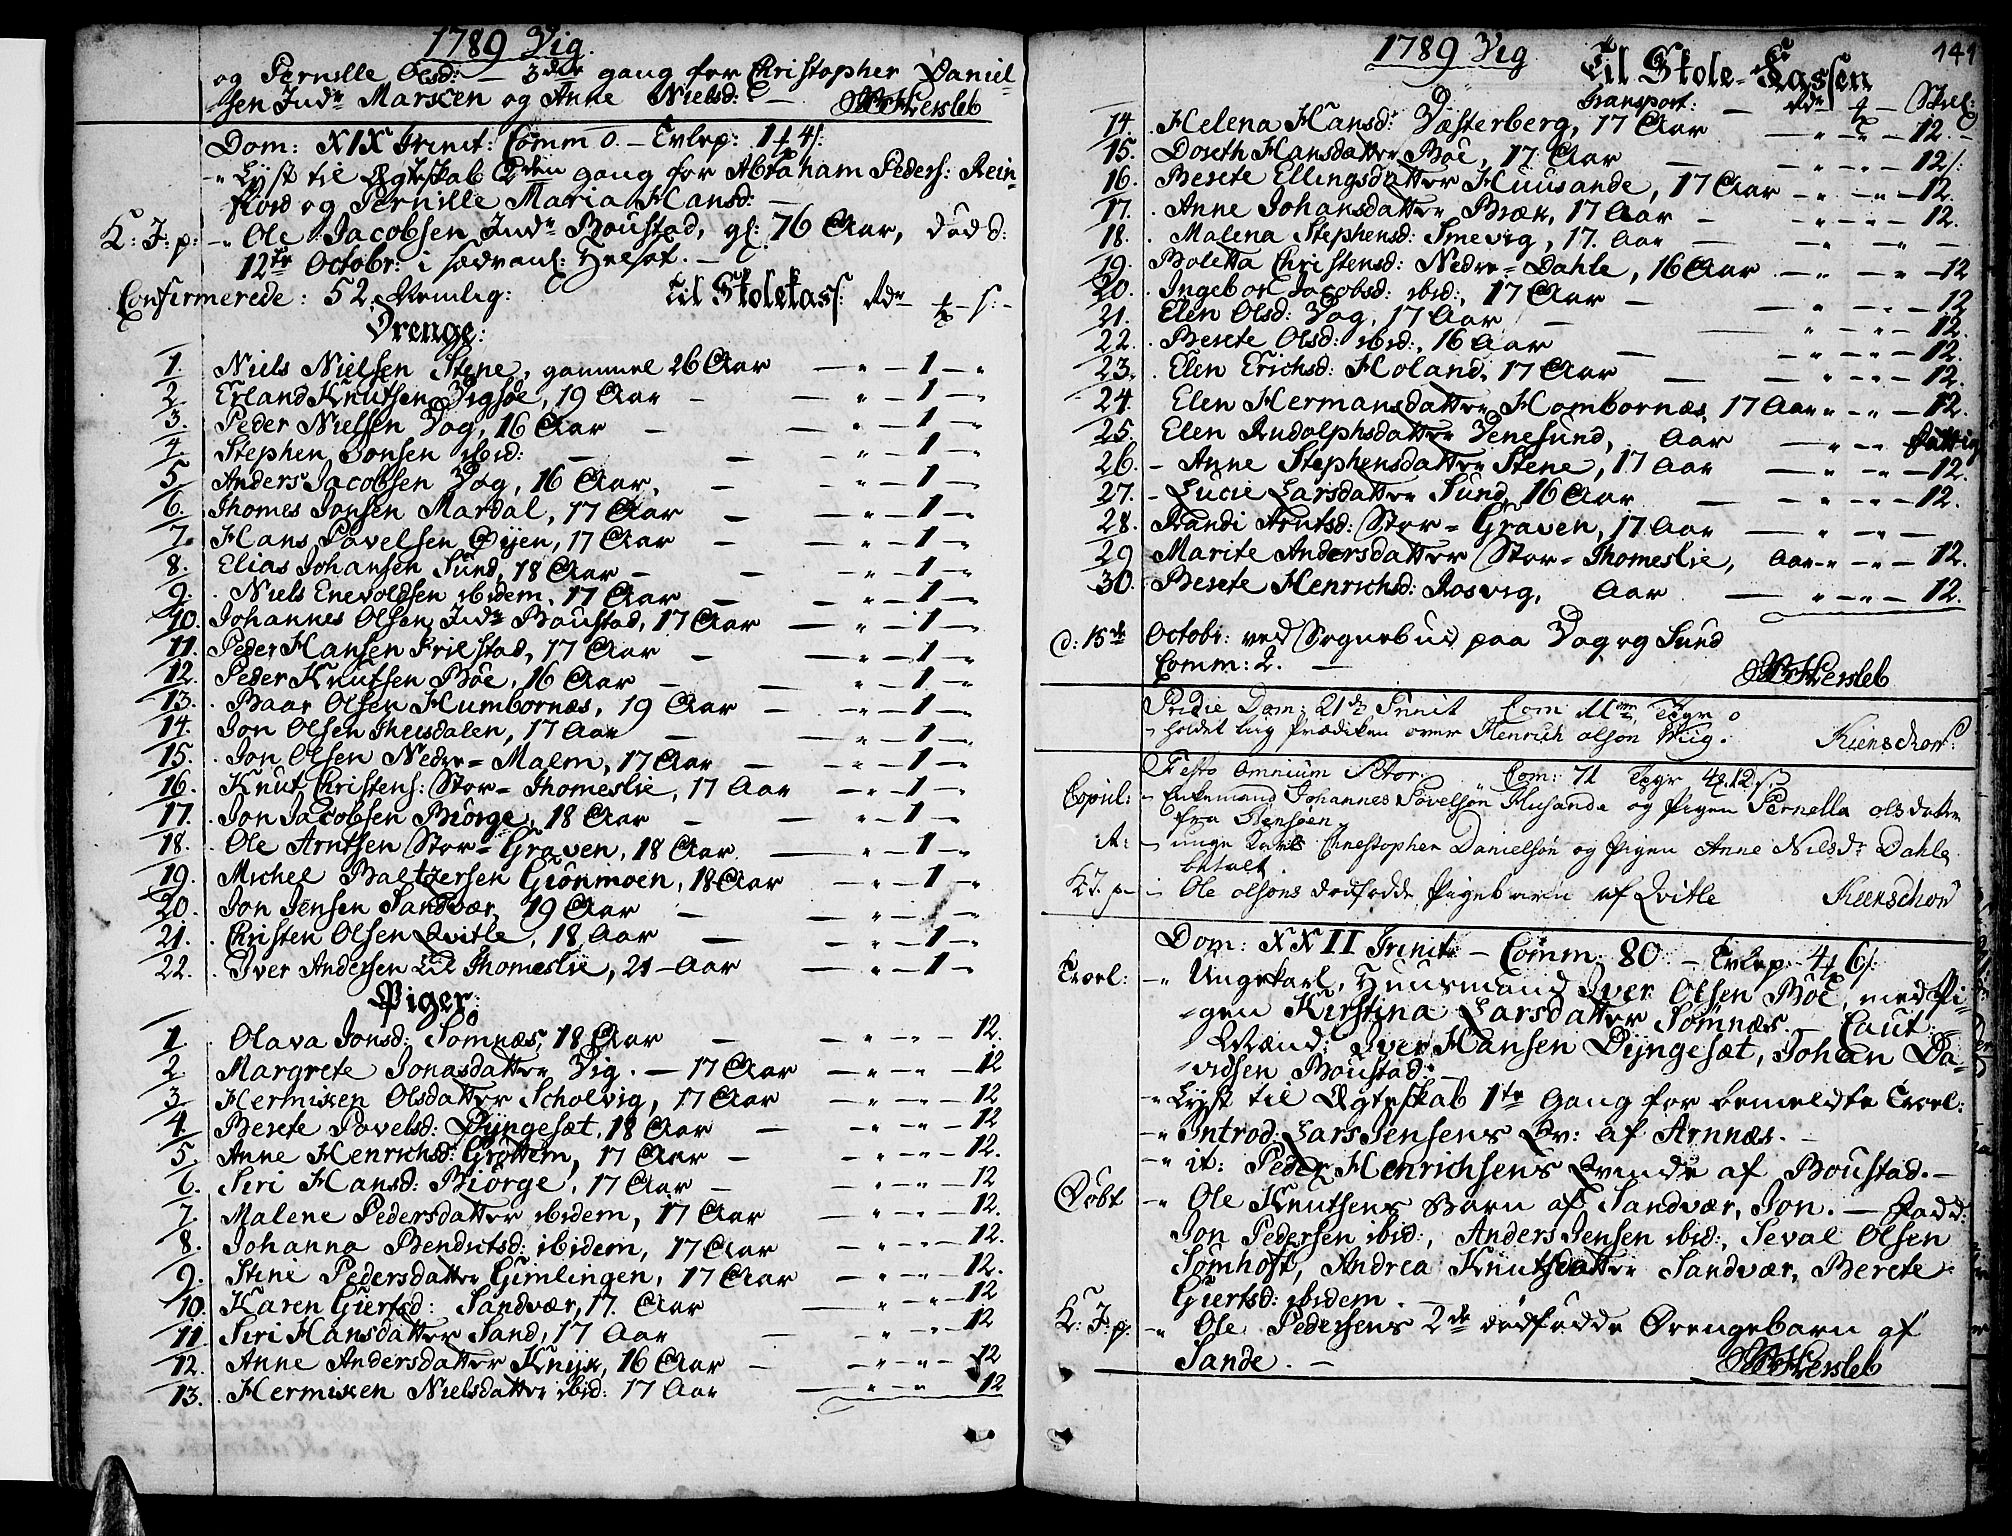 1789 Vig.
og Pernille Olsd: — 3die gang for Christopher Daniel-
sen Indr Marken og Anne Nielsd: —
Dom: XIX Trinit: Comm 0. — Tvlep: 1 ꝶ 4 s.
-" Lyst til Ægteskab 2den gang for Abraham Peders: Rein-
fiord og Pernille Maria Hansd: —
K: J: p: -" Ole Jacobsen Indr Boustad, gl: 76 Aar, död d:
12te Octobr: i sædvanl: Helsot. —
Confirmerede: 52. Nemlig: Til Skolekass: Rdr ꝶ — s: -
Drenge:
1. Niels Nielsen Stene, gammel 26 Aar — " — 1 — "
2. Erland Knutsen Vigsöe, 19 Aar — " — 1 — "
3. Peder Nielsen Vog, 16 Aar — " — 1 — "
4. Stephen Jonsen ibid: — " — 1 — "
5. Anders Jacobsen Vog, 16 Aar. — " — 1 — "
6. Thomes Jonsen Mardal, 17 Aar — " — 1 — "
7. Hans Povelsen Öyen, 17 Aar — " — 1 — "
8. Elias Johansen Sund, 18 Aar — " — 1 — "
9. Niels Enevoldsen ibidem, 17 Aar — " — 1 — "
10. Johannes Olsen Indr Boustad, 17 Aar — " — 1 — "
11. Peder Hansen Frilstad, 17 Aar — " — 1 — "
12. Peder Knutsen Böe, 16 Aar — " — 1 — "
13. Baar Olsen Humbornæs, 19 Aar — " — 1 — "
14. Jon Olsen Theisdalen, 17 Aar — " — 1 — "
15. Jon Olsen Nedre-Malm, 17 Aar — " — 1 — "
16. Knut Christens: Stor-Thomeslie, 17 Aar — " — 1 — "
17. Jon Jacobsen Biörge, 18 Aar — " — 1 — "
18. Ole Arntsen Stor-Graven, 18 Aar — " — 1 — "
19. Michel Baltzersen Grönmoen, 18 Aar — " — 1 — "
20. Jon Jensen Sandvær, 19 Aar — " — 1 — "
21. Christen Olsen Qvitle, 18 Aar — " — 1 — "
22. Iver Andersen Lil Thomeslie, 21 Aar — " — 1 — "
Piger:
1. Olava Jonsd: Sömnæs, 18 Aar — " — " — 12.
2. Margrete Jonasdatter Vig. — 17 Aar — " — " — 12
3. Hermiken Olsdatter Scholvig, 17 Aar — " — " — 12
4. Berete Povelsd: Dyngesæt, 18 Aar — " — " — 12
5. Anne Henrichsd: Gröttem, 17 Aar — " — " — 12.
6. Siri Hansd: Biörge, 17 Aar — " — " — 12
7. Malene Pedersdatter ibidem, 17 Aar — " — " — 12.
8. Johanna Bendictsd: ibidem, 17 Aar — " — " — 12.
9. Stine Pedersdatter Gimlingen, 17 Aar — " — " — 12.
10. Karen Giertsd: Sandvær, 17 Aar — " — " — 12
11. Siri Hansdatter Sand, 17 Aar — " — " — 12
12. Anne Andersdatter Knyk, 16 Aar — " — " — 12
13. Hermiken Nielsdatter ibid: 17 Aar — " — " — 12
1789 Vig Til Skole-Cassen 141
Transport: — Rdr ꝶ — Skil:
14. Helena Hansd: Væsterberg, 17 Aar — " — " — 12. -
15. Doreth Hansdatter Böe, 17 Aar — " — " — 12 s.
16. Berete Ellingsdatter Huusande, 17 Aar — " — " — 12.
17. Anne Johansdatter Bræk, 17 Aar — " — " — 12.
18. Malena Stephensd: Smevig, 17. Aar — " — " —
19. Boletta Christensd: Nedre-Dahle, 16 Aar — " — " — 12
20. Ingebor Jacobsd: ibid:, 17 Aar — " — " — 12
21. Elen Olsd: Vog, 17 Aar — " — " — 12.
22. Berete Olsd: ibid:, 16 Aar — " — " — 12.
23. Elen Erichsd: Holand, 17 Aar — " — " — 12.
24. Elen Hermansdatter Hombornæs, 17 Aar " — " — 12.
25. Elen Rudolphsdatter Venesund, Aar — " — " fattig
26. Anne Stephensdatter Stene, 17 Aar — " — " — 12.
27. Lucie Larsdatter Sund, 16 Aar — " — " — 12.
28. Randi Arntsd: Stor-Graven, 17 Aar — " — " —
29 Marite Andersdatter Stor-Thomeslie, Aar — " — " — 12.
30. Berete Henrichsd: Rosvig, Aar — " — " — 12.
d: 15de Octobr: ved Sognebud paa Vog og Sund
Comm: 2. —
Pridie Dom: 21de Trinit Com
holdet Liig Prædiken over Henrich Olson Wiig.
Festo Omnium Sctor: Com: 71 Tvgr 4 ꝶ 12 s
Copul: - Enkemand Johannes Povelsön Husande og Pigen Pernella olsdatter
fra Stensöen
it: - unge Karl Christopher Danielsön og Pigen Anne Nilsdr Dahle
betalt.
K J p - Ole olsöns dödfödde Pigebarn af Qvitle
Dom: XXII Trinit — Comm: 80 — Tvlep: 4 ꝶ 6 s.
Troel: -" Ungekarl, Huusmand Iver Olsen Böe, med Pi-
gen Kirstina Larsdatter Sömnæs. — Caut:
Mænd: Iver Hansen Dyngesæt, Johan Da-
vidsen Boustad: —
-" Lyst til Ægteskab 1te Gang for bemeldte Troel:
-" Introd: Lars Jensens Qv: af Arnnæs. —
-" it: Peder Henrichsens Qvinde af Boustad. —
Döbt -" Ole Knutsens Barn af Sandvær, Jon. — Fadd:
Jon Pedersen ibid:, Anders Jensen ibid:, Seval Olsen
Sömhoft, Andrea Knutsdatter Sandvær, Berete
Giertsd: ibidem. —
K: J: p: -" Ole Pedersens 2de dödfödde Drengebarn af
Sande. —